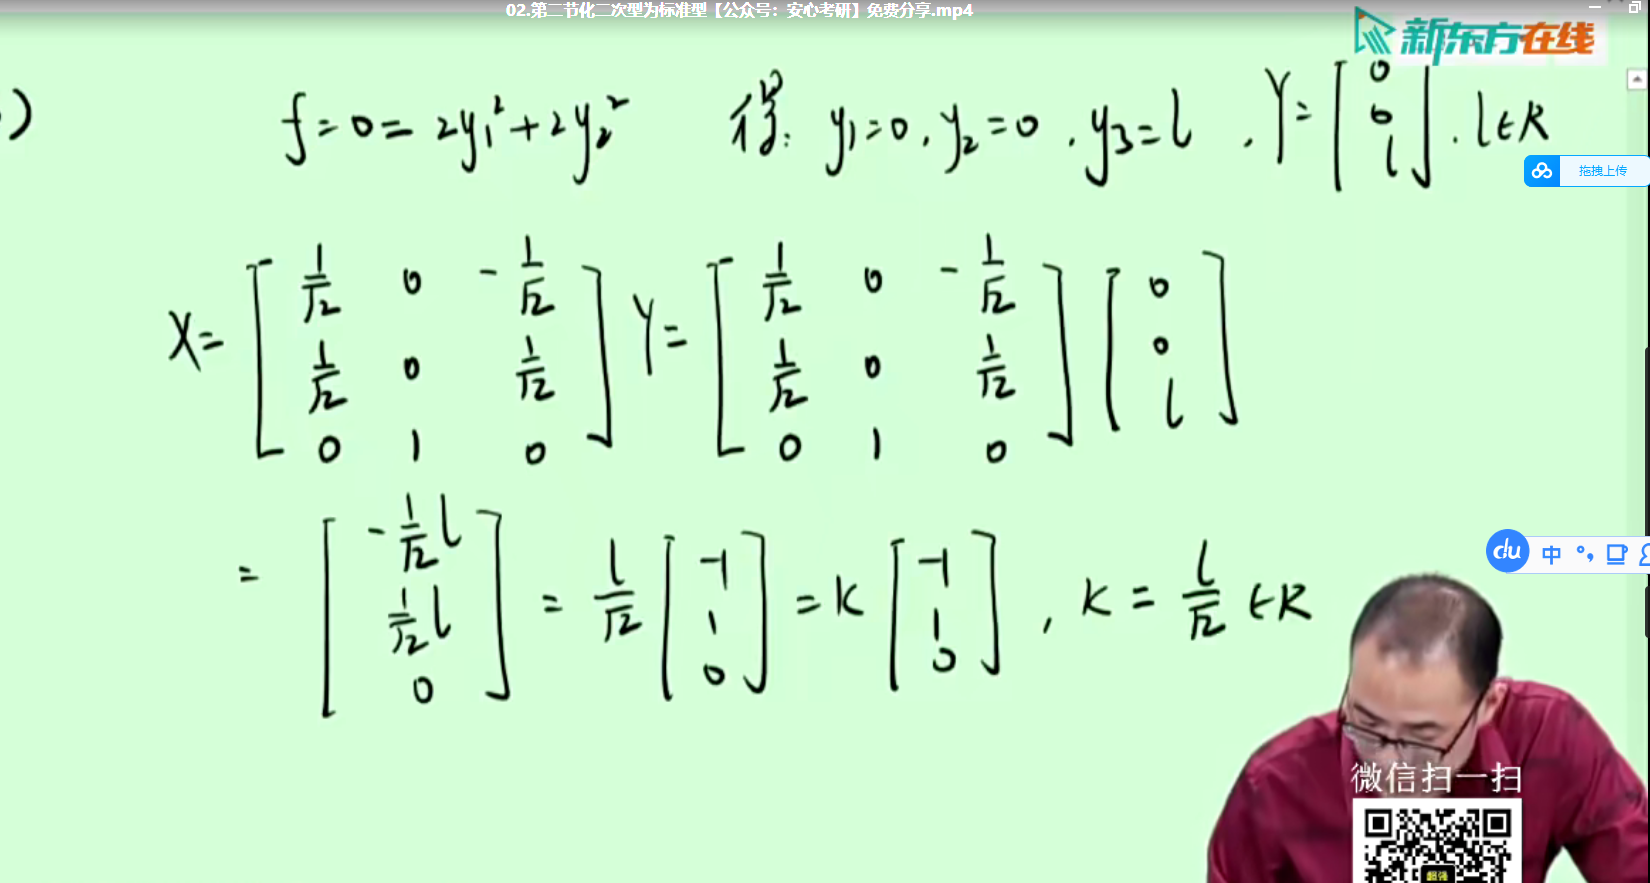 02.第二节化二次型为标准型【公众号：安心考研】免费分享.mp4
新东方在线
) f=0=2y₁²+2y₂² 得: y₁=0, y₂=0, y₃=l, Y=[0 0 l], l∈R
拖拽上传
X=[1/√2 0 -1/√2; 1/√2 0 1/√2; 0 1 0] Y=[1/√2 0 -1/√2; 1/√2 0 1/√2; 0 1 0][0; 0; l]
=[-1/√2 l; 1/√2 l; 0]=l/√2[-1; 1; 0]=k[-1; 1; 0], k=l/√2∈R
du 中 °,
微信扫一扫